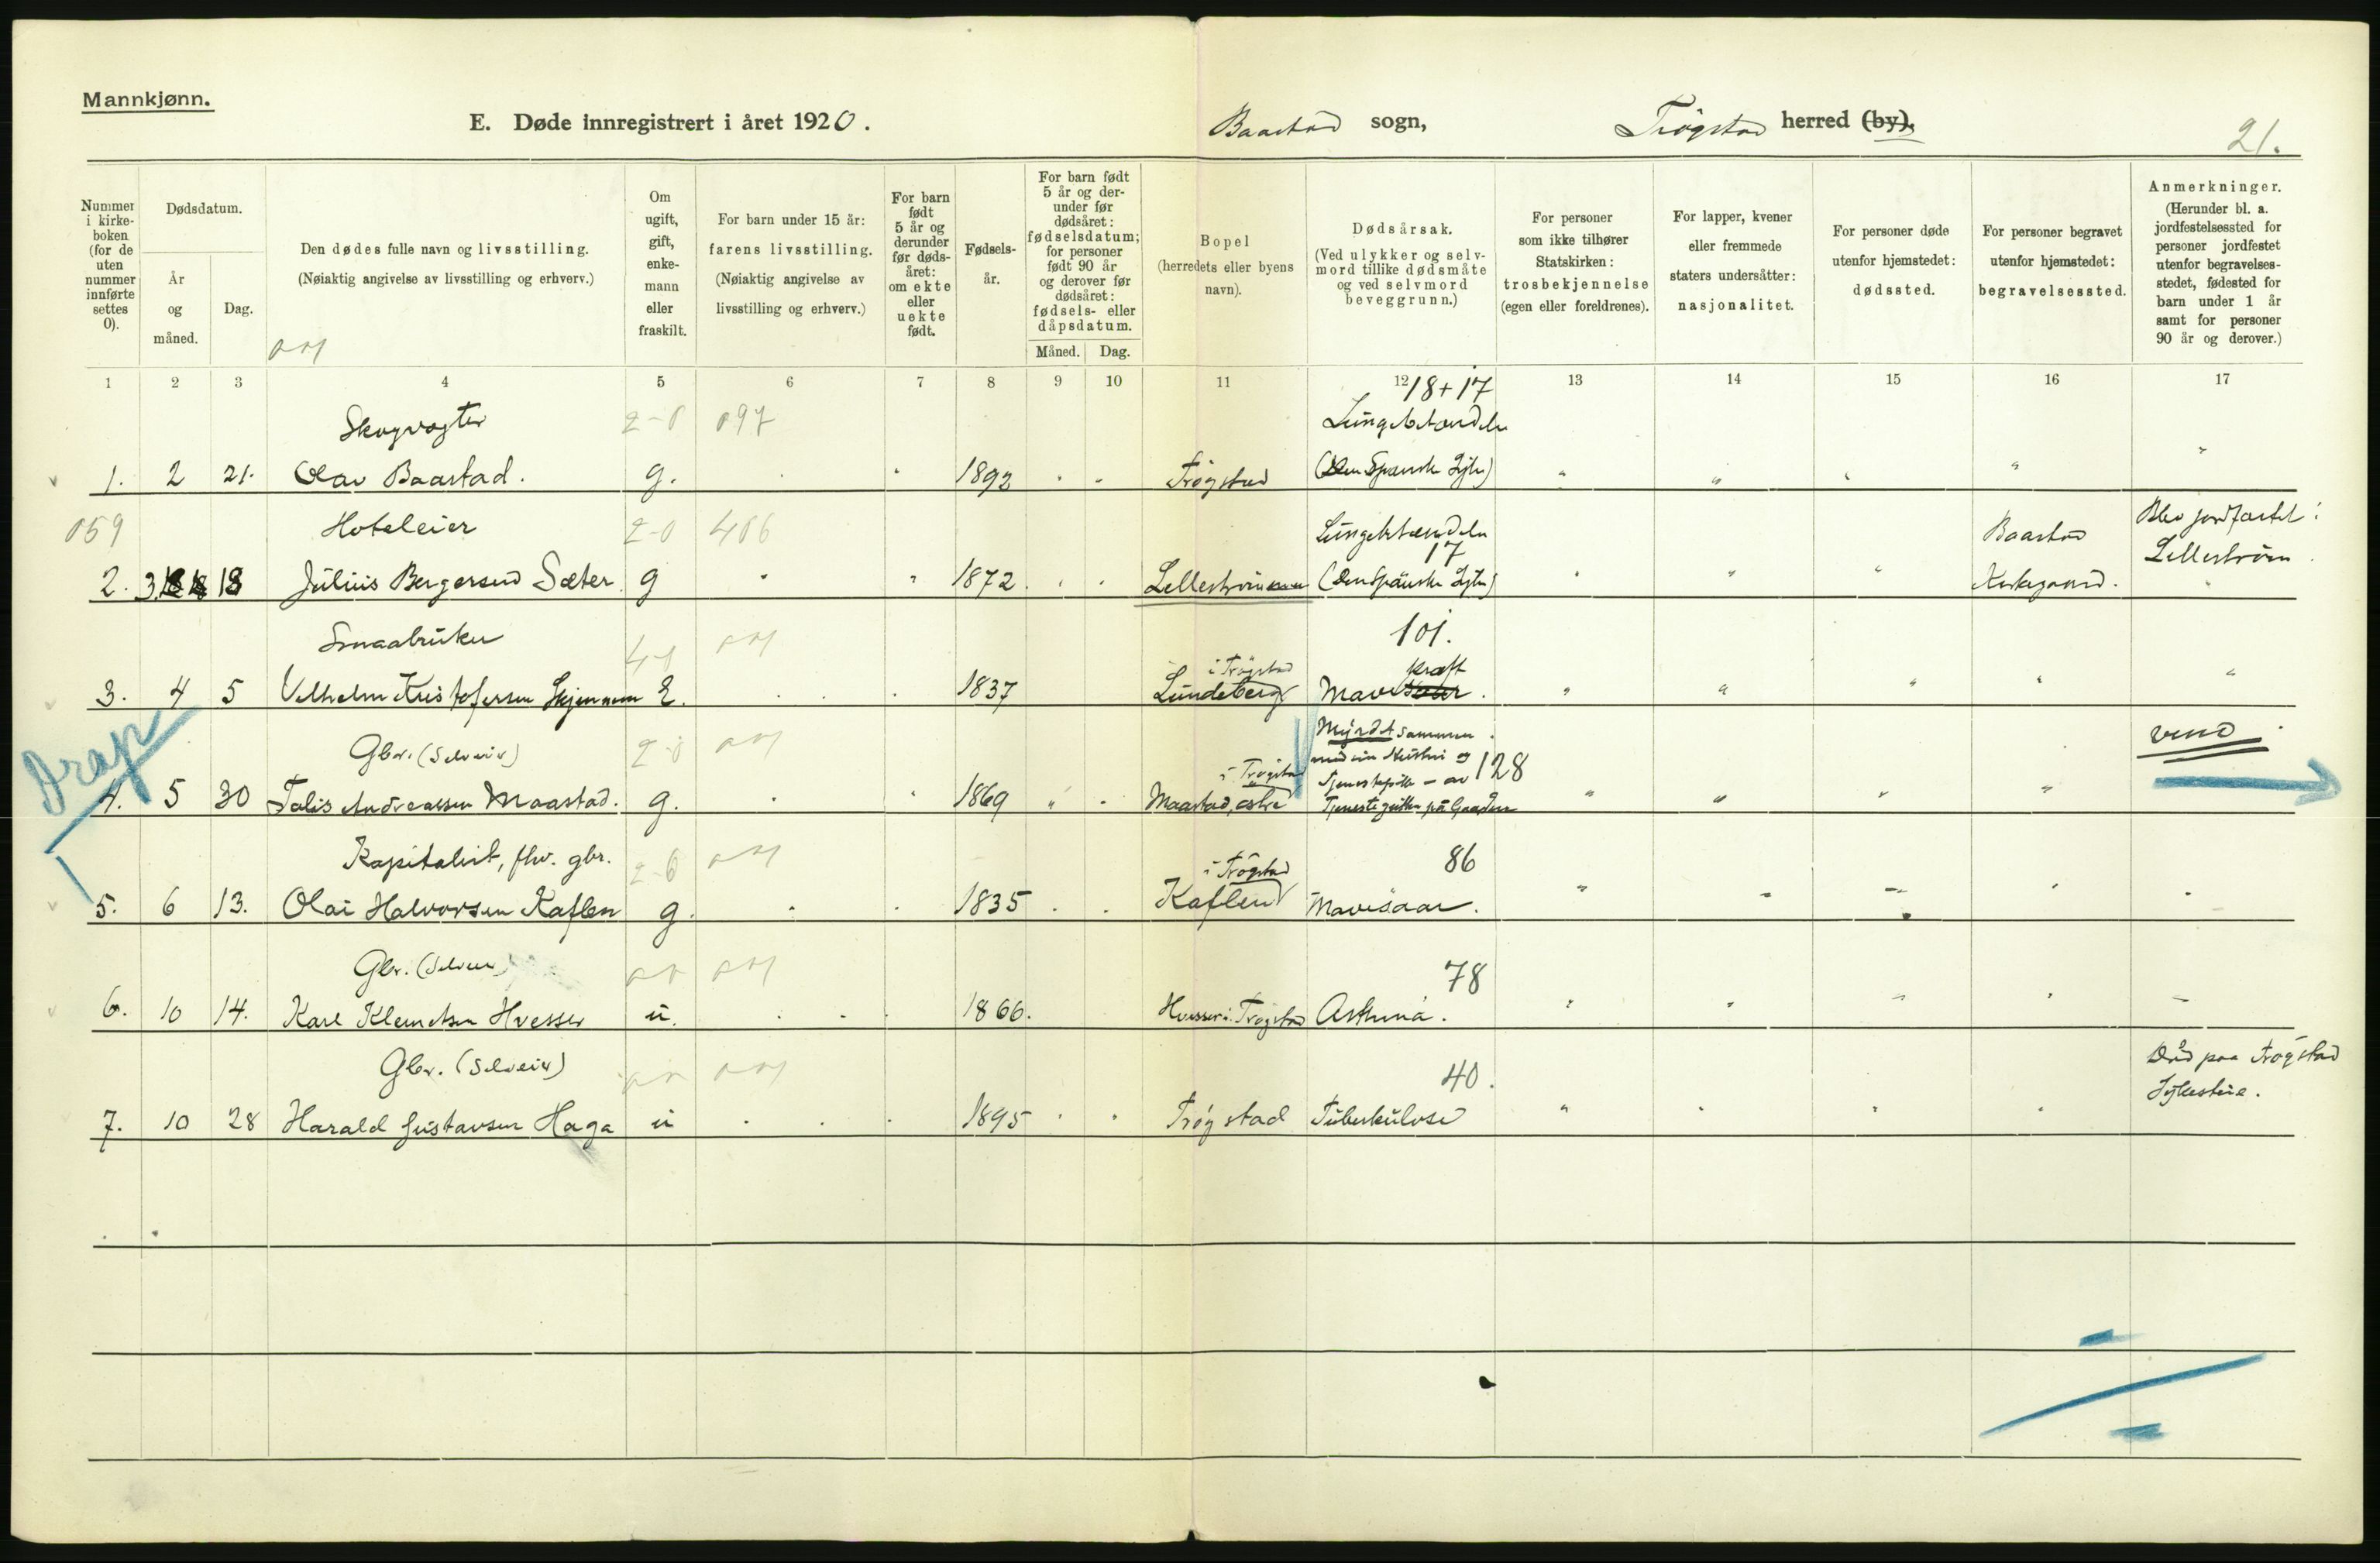 Mannkjønn.
E. Døde innregistrert i året 1920.
Baastad sogn,
Trøgstad herred (by).
21.
Nummer i kirke-boken (for de uten nummer innførte settes 0).
Dødsdatum.
År og måned.
Dag.
Den dødes fulle navn og livsstilling.
(Nøiaktig angivelse av livsstilling og erhverv.)
Om ugift, gift, enke-mann eller fraskilt.
For barn under 15 år:
farens livsstilling.
(Nøiaktig angivelse av livsstilling og erhverv.)
For barn født 5 år og derunder før døds-året: om ekte eller uekte født.
Fødsels-år.
For barn født 5 år og der-under før dødsåret: fødselsdatum; for personer født 90 år og derover før dødsåret: fødsels- eller dåpsdatum.
Måned.
Dag.
Bopel
(herredets eller byens navn).
Dødsårsak.
(Ved ulykker og selv-mord tillike dødsmåte og ved selvmord beveggrunn.)
For personer som ikke tilhører Statskirken: trosbekjennelse (egen eller foreldrenes).
For lapper, kvener eller fremmede staters undersåtter: nasjonalitet.
For personer døde utenfor hjemstedet: dødssted.
For personer begravet utenfor hjemstedet: begravelsessted.
Anmerkninger.
(Herunder bl. a. jordfestelsessted for personer jordfestet utenfor begravelses-stedet, fødested for barn under 1 år samt for personer 90 år og derover.)
1 2 3 4 5 6 7 8 9 10 11 12 13 14 15 16 17
18+17
Skogvogter 2-0 097 Lungebetændelse
1. 2 21. Olav Baastad. g. 1892 Trøgstad (Den Spanske Syke)
059 Hoteleier 2-0 406 Lungebetændelse Baastad Blev jordfæstet i
17
2. 3 18 Julius Bergersen Sæter g 1872. Lellestrømmen (Den Spanske Syke) Kirkegaard. Lellestrøm
Smaabruker 101.
i Trøgstad kræft
3. 4 5 Vilhelm Kristofersen Skjennem E. 1837 Lundeberg Mavesaar.
Drap
Gbr. (Selveier) 2-0 Myrdet sammen vend
med sin Hustru og
i Trøgstad Tjenestepike - av 128
4. 5 30 Talis Andreassen Maastad. g. 1869 Maastad, østre Tjenestegutten på Gaarden
Kapitalist, fhv. gbr. 86
i Trøgstad
5. 6 13. Olai Halvorsen Kaflen g. 1835 Kaflen Mavesaar.
Gbr. (Selveier) 78
6. 10 14. Karl Klemetsen Hvesser u. 1866. Hvesser i Trøgstad Asthma.
Gbr. (Selveier) 40. Død paa Trøgstad
Sykestue.
7. 10 28 Harald Gustavsen Haga u 1895 Trøgstad Tuberkulose